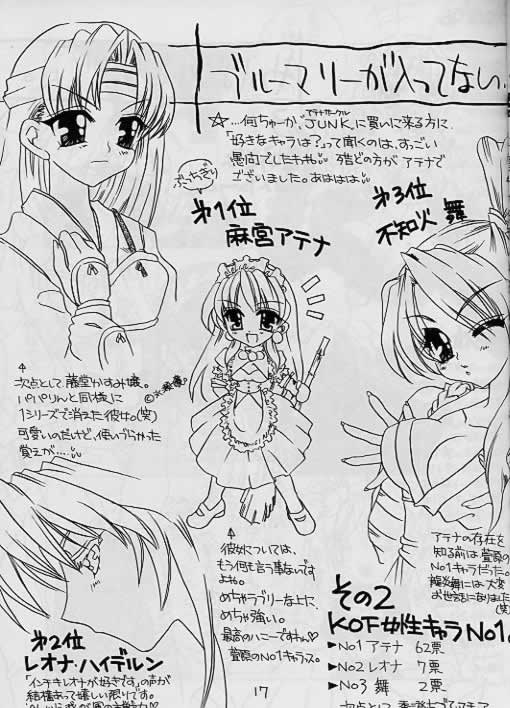 ブルーマリーが入ってない
☆…何ちゅーか、JUNKに買いに来る方に、
「好きなキャラは?」って聞くのは、すっごい
愚問でしたわね 殆どの方がアテナで
ございました。あははは
ぶっちぎり
第1位
麻宮アテナ
第3位
不知火 舞
次点として、藤堂かすみ嬢。
同様に
1シリーズで消えた彼女。(笑)
可愛いのだけど、使いづらかった
覚えが…
彼女については、
もう何も言う事ないです
よね。
めちゃラブリーな上に、
めちゃ強い。
最高のハニーですわん♡
萱原のNo1キャラっス。
アテナの存在を
知る前は萱原の
No1キャラだった。
龍炎舞には大変
お世話になりました
(笑)
第2位
レオナ・ハイデルン
「インチキレオナが好きです」の声が
結構あって嬉しい限りです。
その2
KOF女性キャラNo1
▶No1 アテナ 62票
▶No2 レオナ 7票
▶No3 舞 2票
17